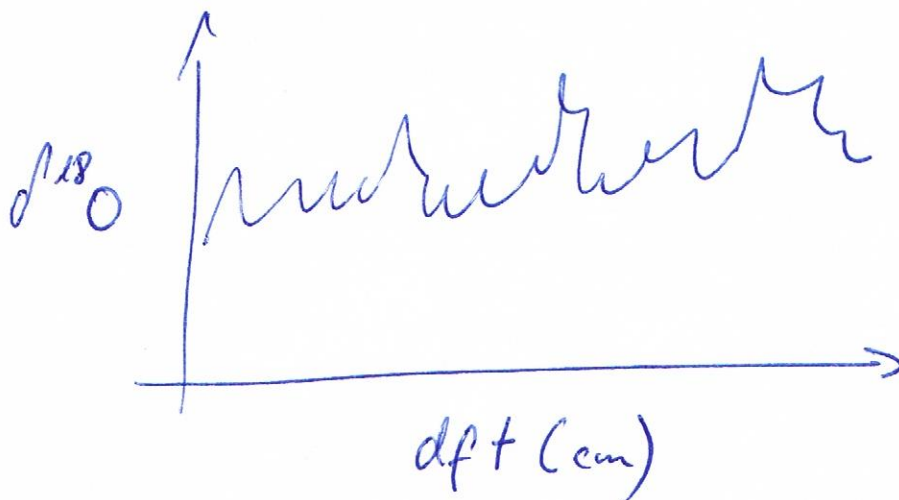 δ¹⁸O
dft (cm)